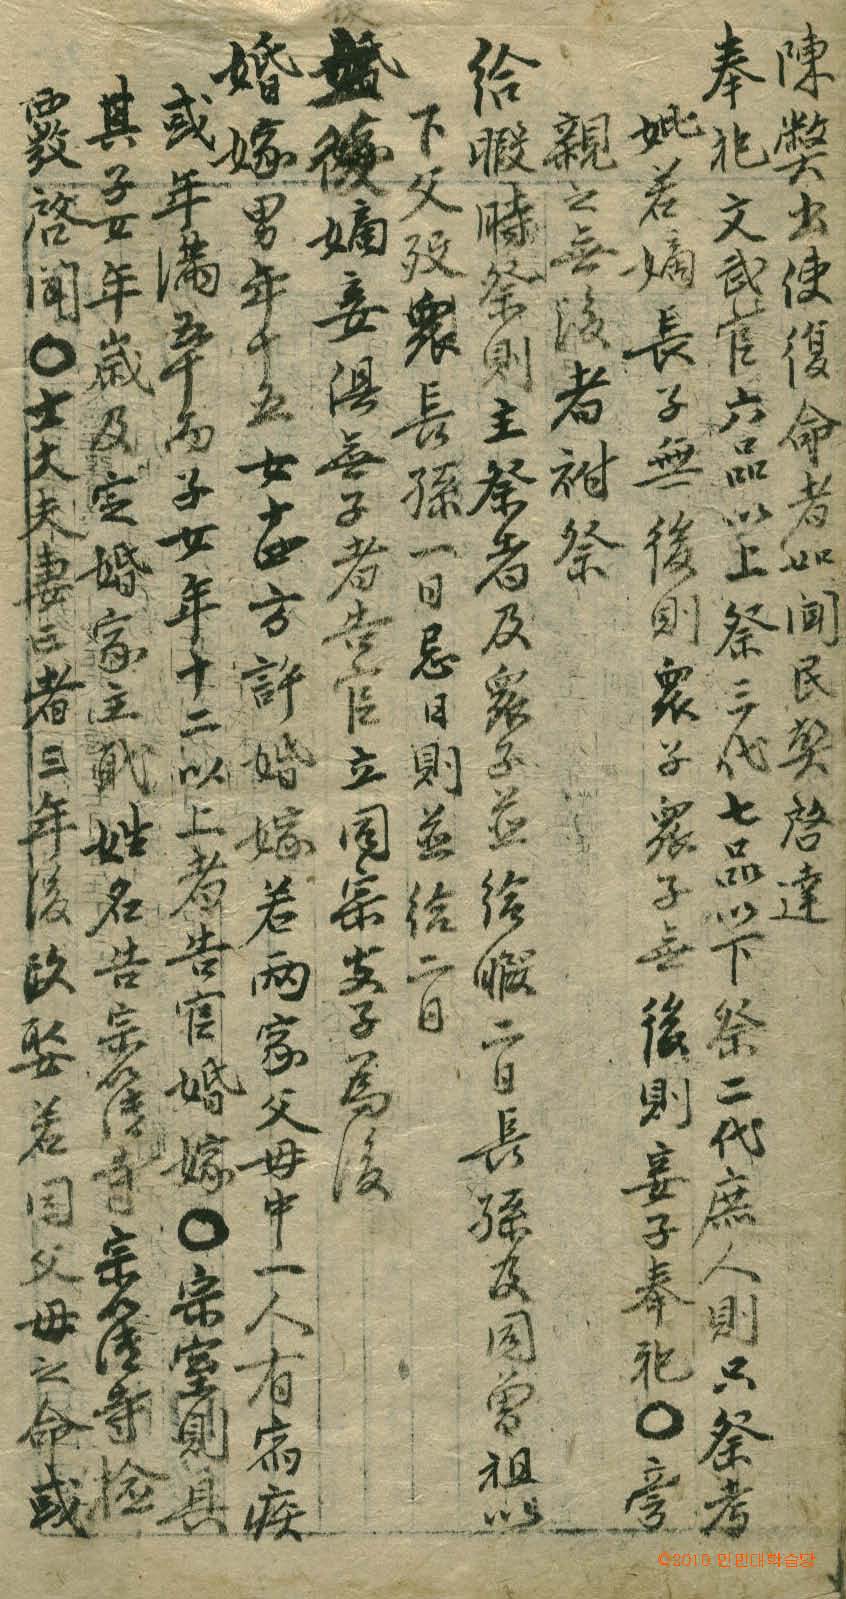 陳弊出使復命者如聞民弊啓達
奉祀文武官六品以上祭三代七品以下祭二代庶人則只祭考
妣若嫡長子無後則衆子衆子無後則妾子奉祀〇旁
親之無後者祔祭
給暇時祭則主祭者及衆子並給暇二日長孫及同曾祖以
下父歿衆長孫一日忌日則並給二日
立後嫡妾俱無子者告官立同宗支子爲後
婚嫁男年十五女十四方許婚嫁若兩家父母中一人有宿疾
或年滿五十而子女年十二以上者告官婚嫁〇宗室則具
其子女年歲及定婚家主職姓名告宗簿寺宗簿寺撿
覈啓聞〇士大夫妻亡者三年後改娶若因父母之命或
©2010 민민대학습당